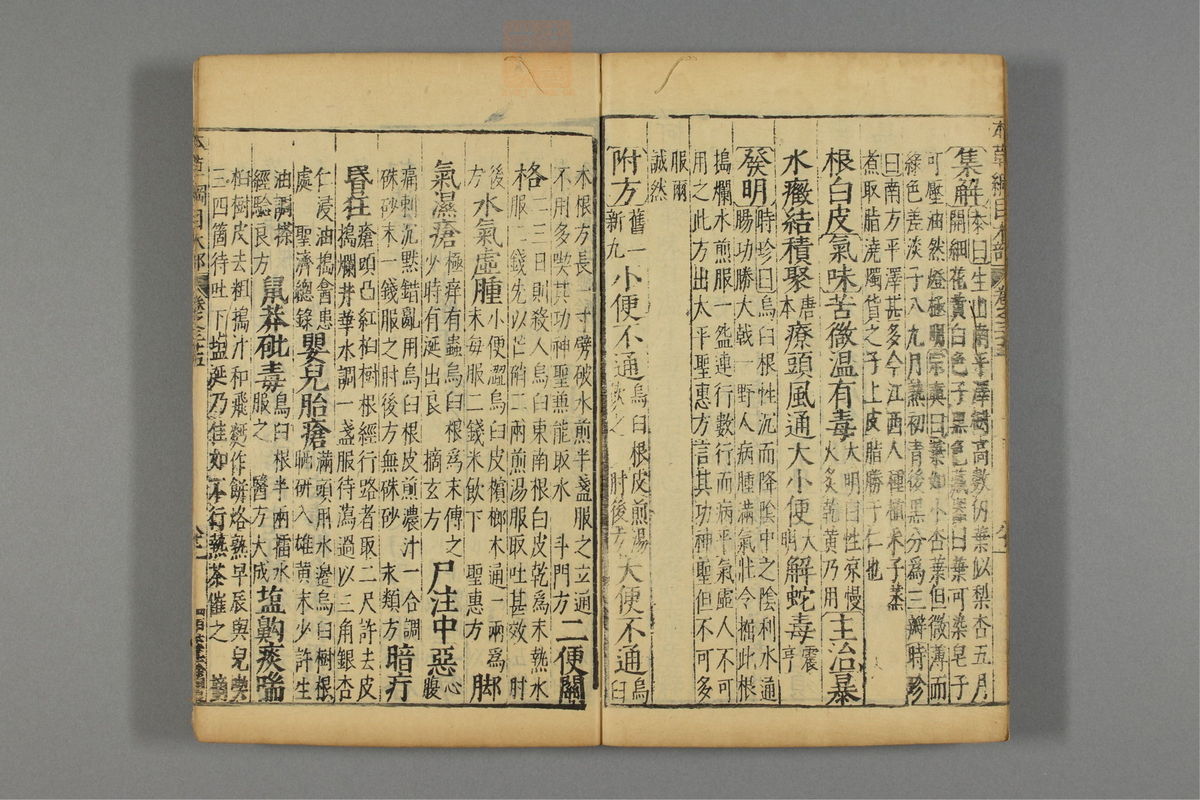 集解恭曰生山南平澤樹高數仞葉似梨杏五月
開細花黃白色子黑色藏器曰葉可染皂子
可壓油然燈極明宗奭曰葉如小杏葉但微薄而
綠色差淡子八九月熟初青後黑分為三瓣時珍
曰南方平澤甚多今江西人種植采子蒸
煮取脂澆燭貨之子上皮脂勝于仁也
根白皮氣味苦微溫有毒大明曰性凉慢火炙乾黃乃用主治暴
水癥結積聚唐本療頭風通大小便大明解蛇毒震亨
發明時珍曰烏臼根性沉而降陰中之陰利水通
腸功勝大戟一野人病腫滿氣壯令掘此根
搗爛水煎服一盌連行數行而病平氣虛人不可
用之此方出太平聖惠方言其功神聖但不可多
服爾
誠然
附方舊一新九小便不通烏臼根皮煎湯飲之 肘後方大便不通烏臼
木根方長一寸劈破水煎半盞服之立通不用多喫其功神聖兼能取水 斗門方二便關
格二三日則殺人烏臼東南根白皮乾為末熱水服二錢先以芒硝二兩煎湯服取吐甚效 肘
後方水氣虛腫小便澀烏臼皮檳榔木通一兩為末每服二錢米飲下 聖惠方脚
氣濕瘡極痒有蟲烏臼根為末傅之少時有涎出良 摘玄方尸注中惡心腹
痛刺沉默錯亂用烏臼根皮煎濃汁一合調硃砂末一錢服之肘後方無硃砂 永類方暗疔
昏狂瘡頭凸紅桕樹根經行路者取二尺許去皮搗爛井華水調一盞服待瀉過以三角銀杏
仁浸油搗禽患處 聖濟總錄嬰兒胎瘡滿頭用水邊烏臼樹根晒研入雄黃末少許生
油調搽經驗良方鼠莽砒毒烏臼根半兩擂水服之 醫方大成塩齁痰喘
桕樹皮去粗搗汁和飛麪作餅烙熟早辰與兒喫
三四箇待吐下塩涎乃佳如不行熱茶催之 摘